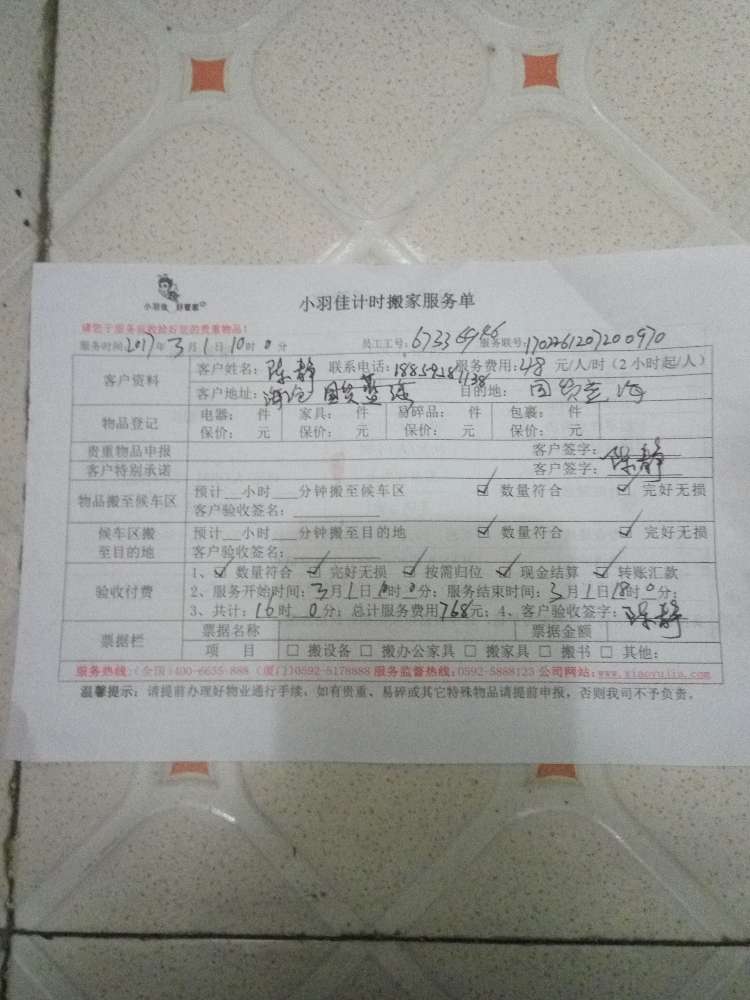 小羽佳 好管家
小羽佳计时搬家服务单
请您于服务前收拾好您的贵重物品！
服务时间:2017年3月1日10时0分 员工工号: 服务联号:1702261207200970
客户资料
客户姓名：陈静 联系电话: 服务费用:48元/人/时（2小时起/人）
客户地址：海沧国贸 目的地：国贸
物品登记
电器： 件 家具： 件 易碎品： 件 包裹： 件
保价： 元 保价： 元 保价： 元 保价： 元
贵重物品申报 客户签字：
客户特别承诺 客户签字：陈静
物品搬至候车区
预计__小时___分钟搬至候车区 ☑ 数量符合 ☑ 完好无损
客户验收签名：
候车区搬至目的地
预计__小时___分钟搬至目的地 ☑ 数量符合 ☑ 完好无损
客户验收签名：
验收付费
1、☑ 数量符合 ☑ 完好无损 ☑ 按需归位 ☑ 现金结算 ☑ 转账汇款
2、服务开始时间：3月1日10时0分；服务结束时间：3月1日18时0分；
3、共计：16时0分；总计服务费用768元；4、客户验收签字：陈静
票据栏
票据名称 票据金额
项 目 □ 搬设备 □ 搬办公家具 □ 搬家具 □ 搬书 □ 其他：
服务热线：(全国)400-6655-888 (厦门)0592-5178888 服务监督热线：0592-5888123 公司网站：www.xiaoyujia.com
温馨提示：请提前办理好物业通行手续，如有贵重、易碎或其它特殊物品请提前申报，否则我司不予负责。